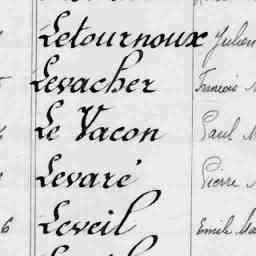 Letournoux Julien
Levacher François
Le Vacon Paul M
Levaré Pierre
6 Leveil Emile Ma